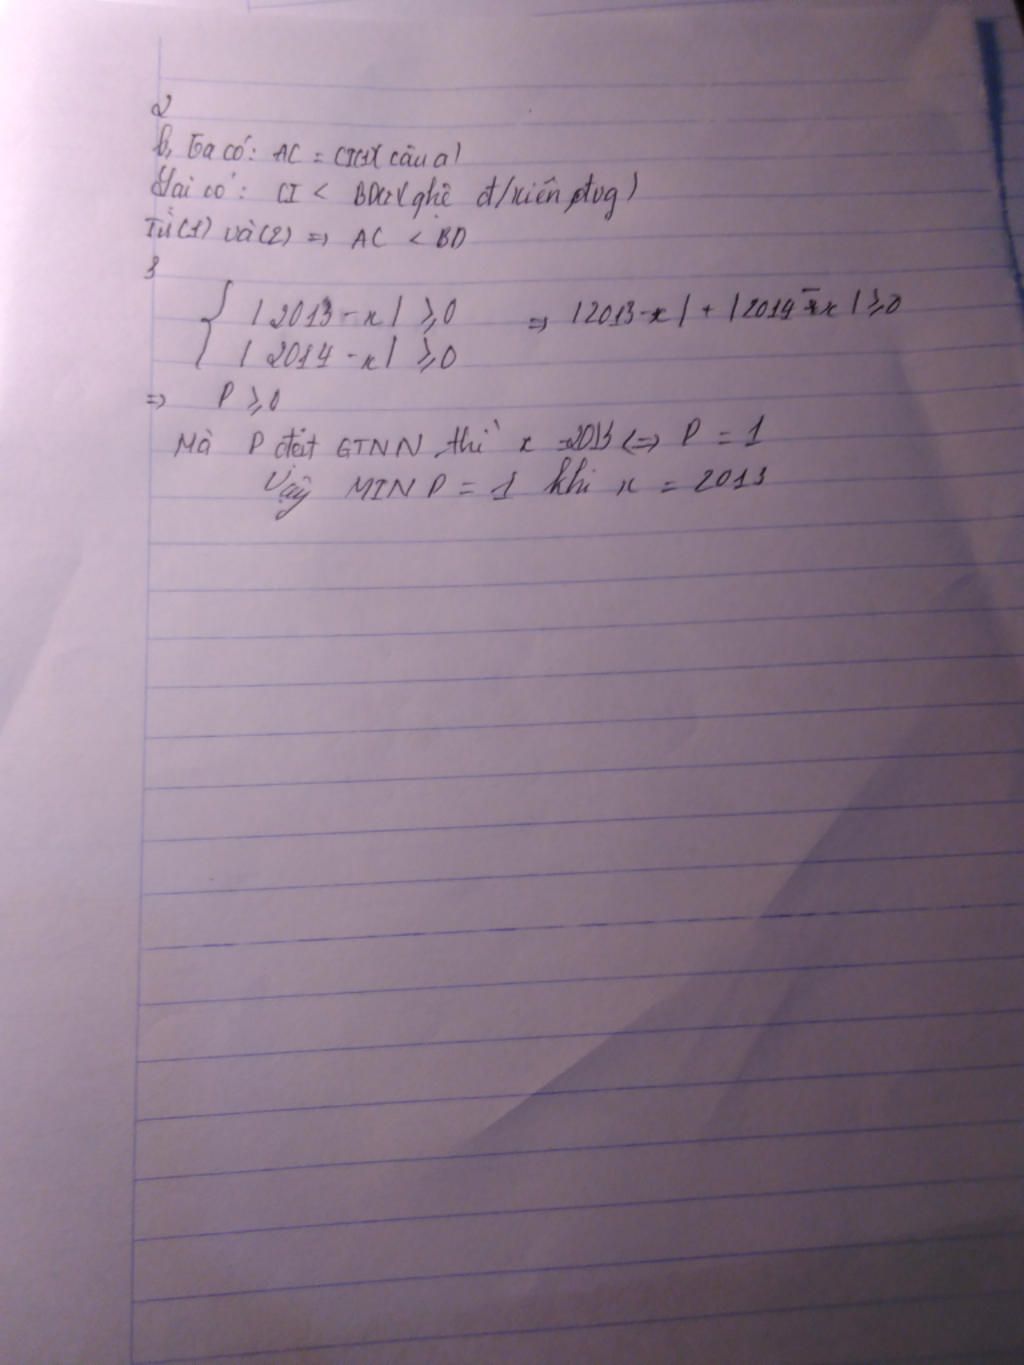 2
b, Ta có: AC = CI (1) ( câu a )
Lại có: CI < BD (2) ( qhệ đ/xiên đvg )
Từ (1) và (2) => AC < BD
3
{ | 2013 - x | ≥ 0 => | 2013 - x | + | 2014 - x | ≥ 0
| 2014 - x | ≥ 0
=> P ≥ 0
Mà P đạt GTNN thì x = 2013 <=> P = 1
Vậy MIN P = 1 khi x = 2013